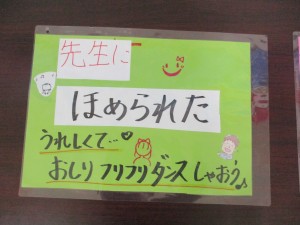 先生に
ほめられた
うれしくて…♥
おしりフリフリダンスしゃおう♪